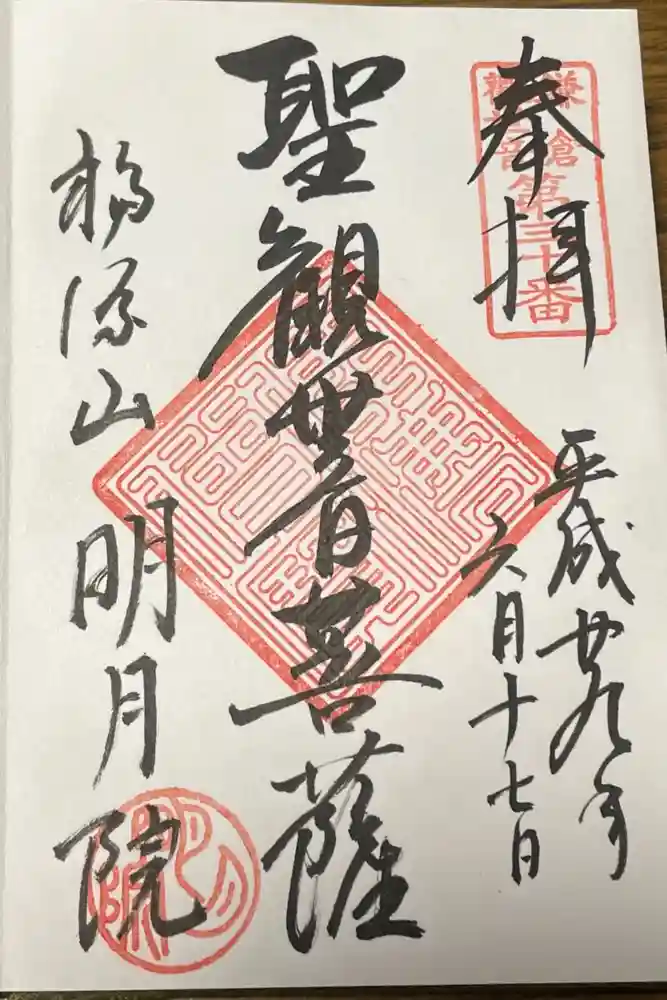 奉拝
鎌倉
観世音
第三十番
平成廿九年
六月十七日
聖観世音菩薩
福源山 明月院
明月院